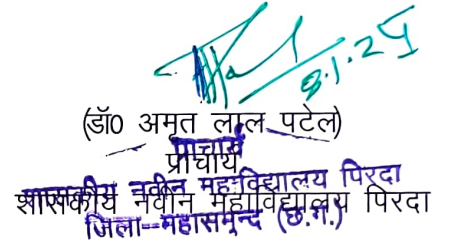 8.1.24
(डॉ0 अमृत लाल पटेल)
प्राचार्य
प्राचार्य
शासकीय नवीन महाविद्यालय पिरदा
शासकीय नवीन महाविद्यालय पिरदा
जिला--महासमुन्द (छ.ग.)